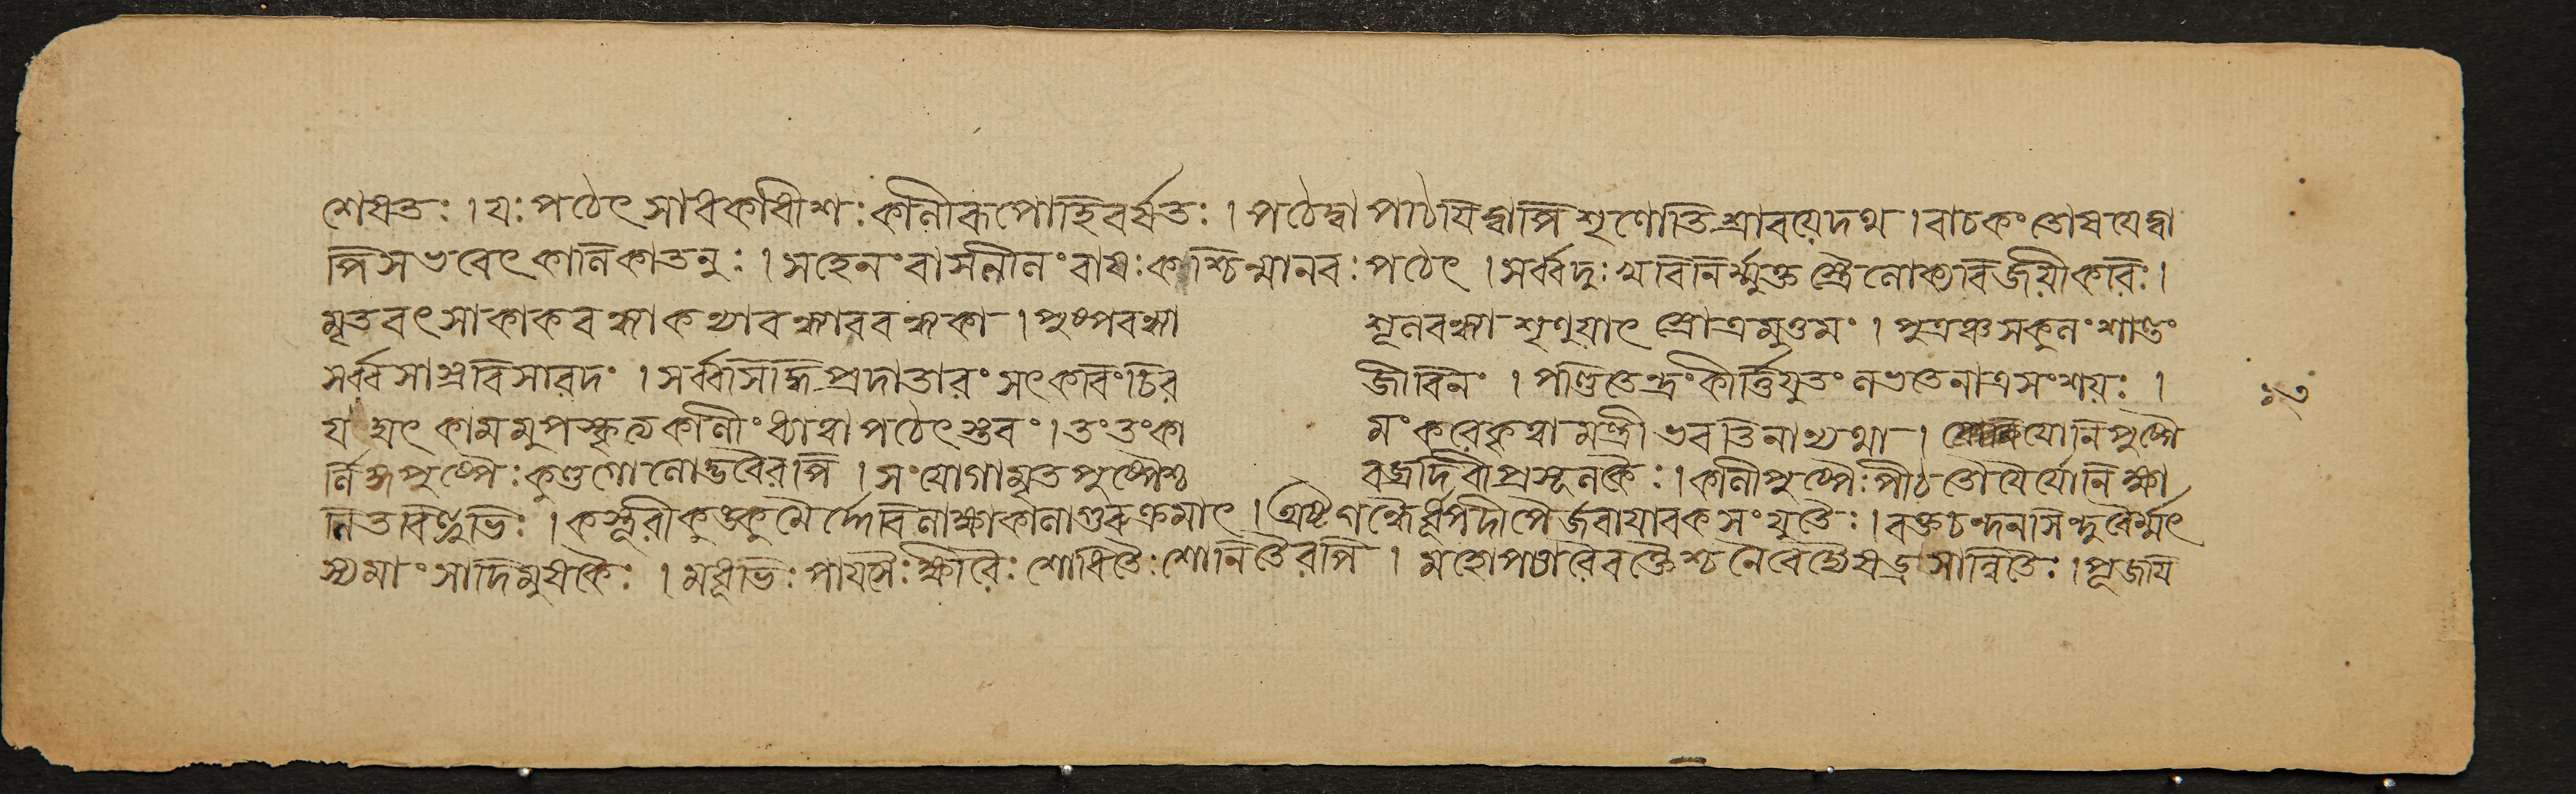 শেষতঃ । যঃ পঠেৎ সাধকাধীশঃ কালীরূপোহি বর্ষতঃ । পঠেদ্বা পাঠযিদ্বাপি শৃণোতি শ্রাবয়েদথ । বাচকং তোষযেদ্বা
পি স ভবেৎ কালিকাতনুঃ । সহেলং বা সলীলং বা যঃ কশ্চিন্মানবঃ পঠেৎ । সর্ব্বদুঃখবিনির্ম্মুক্ত স্ত্রৈলোক্যবিজয়ী কবিঃ ।
মৃতবৎসা কাকবন্ধ্যা কথ্যাবন্ধ্যারবন্ধকা । পুষ্পবন্ধ্যা শূলবন্ধ্যা শৃণুয়াৎ স্তোত্রমুত্তমং । পুত্রঞ্চ সকুলং শান্তং
সর্ব্বসাস্ত্রবিসারদং । সর্ব্বাসিদ্ধিপ্রদাতারং সৎকবিং চির জীবিনং । পণ্ডিতেন্দ্রং কীর্ত্তিযুতং লভতে নাত্র সংশয়ঃ ।
যং যৎ কামমুপস্কৃত্য কালীং ধ্যাত্বা পঠেৎ স্তবং । তং তং কা মং করে কৃত্বা মন্ত্রী ভবতি নান্যথা । যোনিপুষ্পৈ
র্লিঙ্গপুষ্পৈঃ কুণ্ডগোলোদ্ভবৈরপি । সংযোগামৃতপুষ্পৈশ্চ বজ্রদেবীপ্রসূনকৈঃ । কালীপুষ্পৈঃ পীঠতোযৈর্যোনিক্ষা
লিতবিন্দুভিঃ । কস্তূরীকুঙ্কুমৈর্দ্দেবি লাক্ষাকালাগুরুক্রমাৎ । অষ্টগন্ধৈর্ধূপদীপৈর্জবাযাবকসংযুতৈঃ । রক্তচন্দনসিন্দুরৈর্ম্মৎ
স্যমাংসাদিমুষকৈঃ । মধুভিঃ পাযসৈঃ ক্ষীরৈঃ শোধিতৈঃ শোনিতৈরপি । মহোপচারৈ রক্তৈশ্চ নৈবেদ্যৈ ষড্রসান্বিতৈঃ । পূজযি
১৩